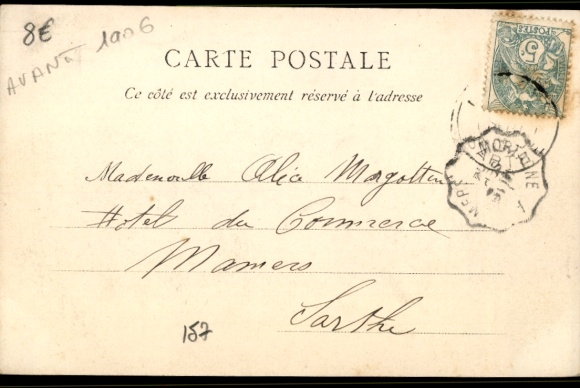 8€
AVANT 1906
CARTE POSTALE
Ce côté est exclusivement réservé à l'adresse
POSTES 5
MORTAGNE
Mademoiselle Alice
Hotel du Commerce
Mamers
Sarthe
157